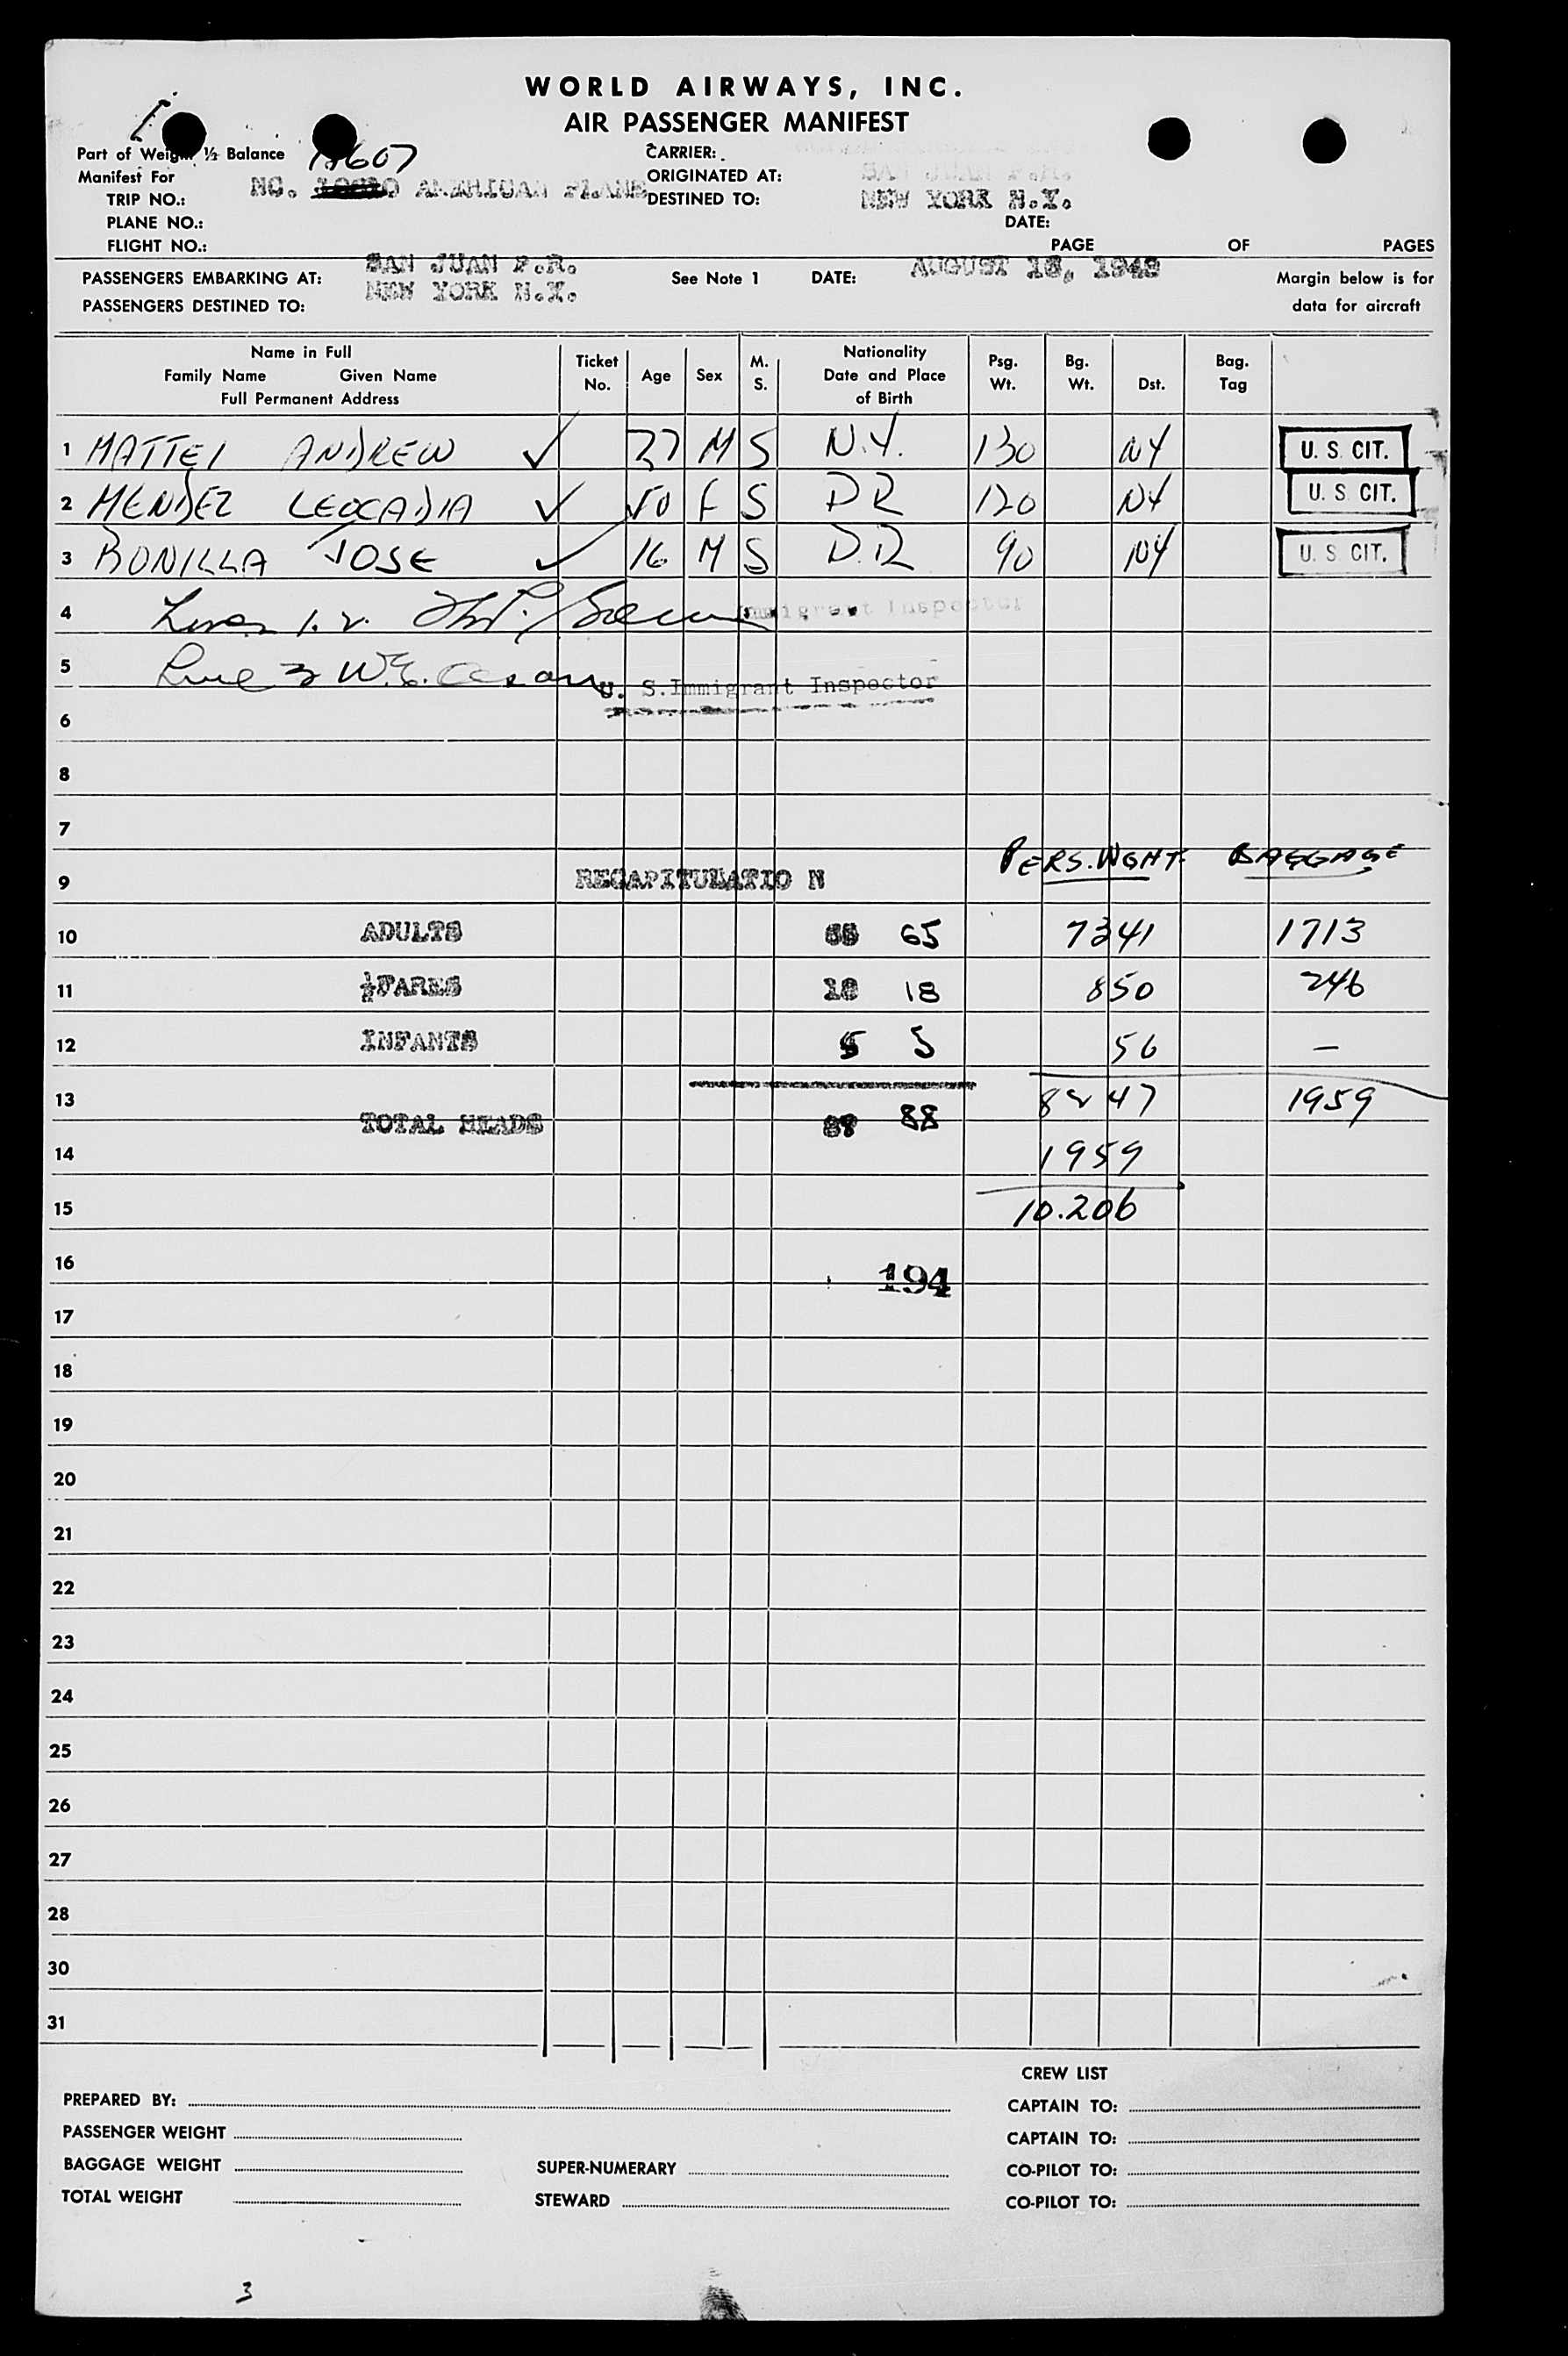 WORLD AIRWAYS, INC.
AIR PASSENGER MANIFEST
Part of Weight ½ Balance
Manifest For
TRIP NO.:
PLANE NO.:
FLIGHT NO.:
NC. AMERICAN PLANE
CARRIER:
ORIGINATED AT: SAN JUAN P.R.
DESTINED TO: NEW YORK N.Y.
DATE:
PAGE OF PAGES
PASSENGERS EMBARKING AT: SAN JUAN P.R. See Note 1 DATE: AUGUST 16, 1949
PASSENGERS DESTINED TO: NEW YORK N.Y.
Margin below is for
data for aircraft
Name in Full
Family Name Given Name
Full Permanent Address
Ticket No.
Age
Sex
M. S.
Nationality
Date and Place
of Birth
Psg. Wt.
Bg. Wt.
Dst.
Bag. Tag
1 MATTEI ANDREW ✓ M S N.Y. 130 NY U. S. CIT.
2 MENDEZ LEOCADIA ✓ 50 F S P R 120 NY U. S. CIT.
3 BONILLA JOSE ✓ 16 M S P.R 90 NY U. S. CIT.
4 Immigrant Inspector
5 U. S. Immigrant Inspector
6
8
7
PERS. WGHT. BAGGAGE
9 RECAPITULATIO N
10 ADULTS 65 7341 1713
11 ½FARES 18 18 850 246
12 INFANTS 5 5 56 —
13 8247 1959
TOTAL HEADS 87 88
14 1959
15 10.206
16
194
17
18
19
20
21
22
23
24
25
26
27
28
30
31
CREW LIST
PREPARED BY:
PASSENGER WEIGHT
BAGGAGE WEIGHT
TOTAL WEIGHT
SUPER-NUMERARY
STEWARD
CAPTAIN TO:
CAPTAIN TO:
CO-PILOT TO:
CO-PILOT TO:
3